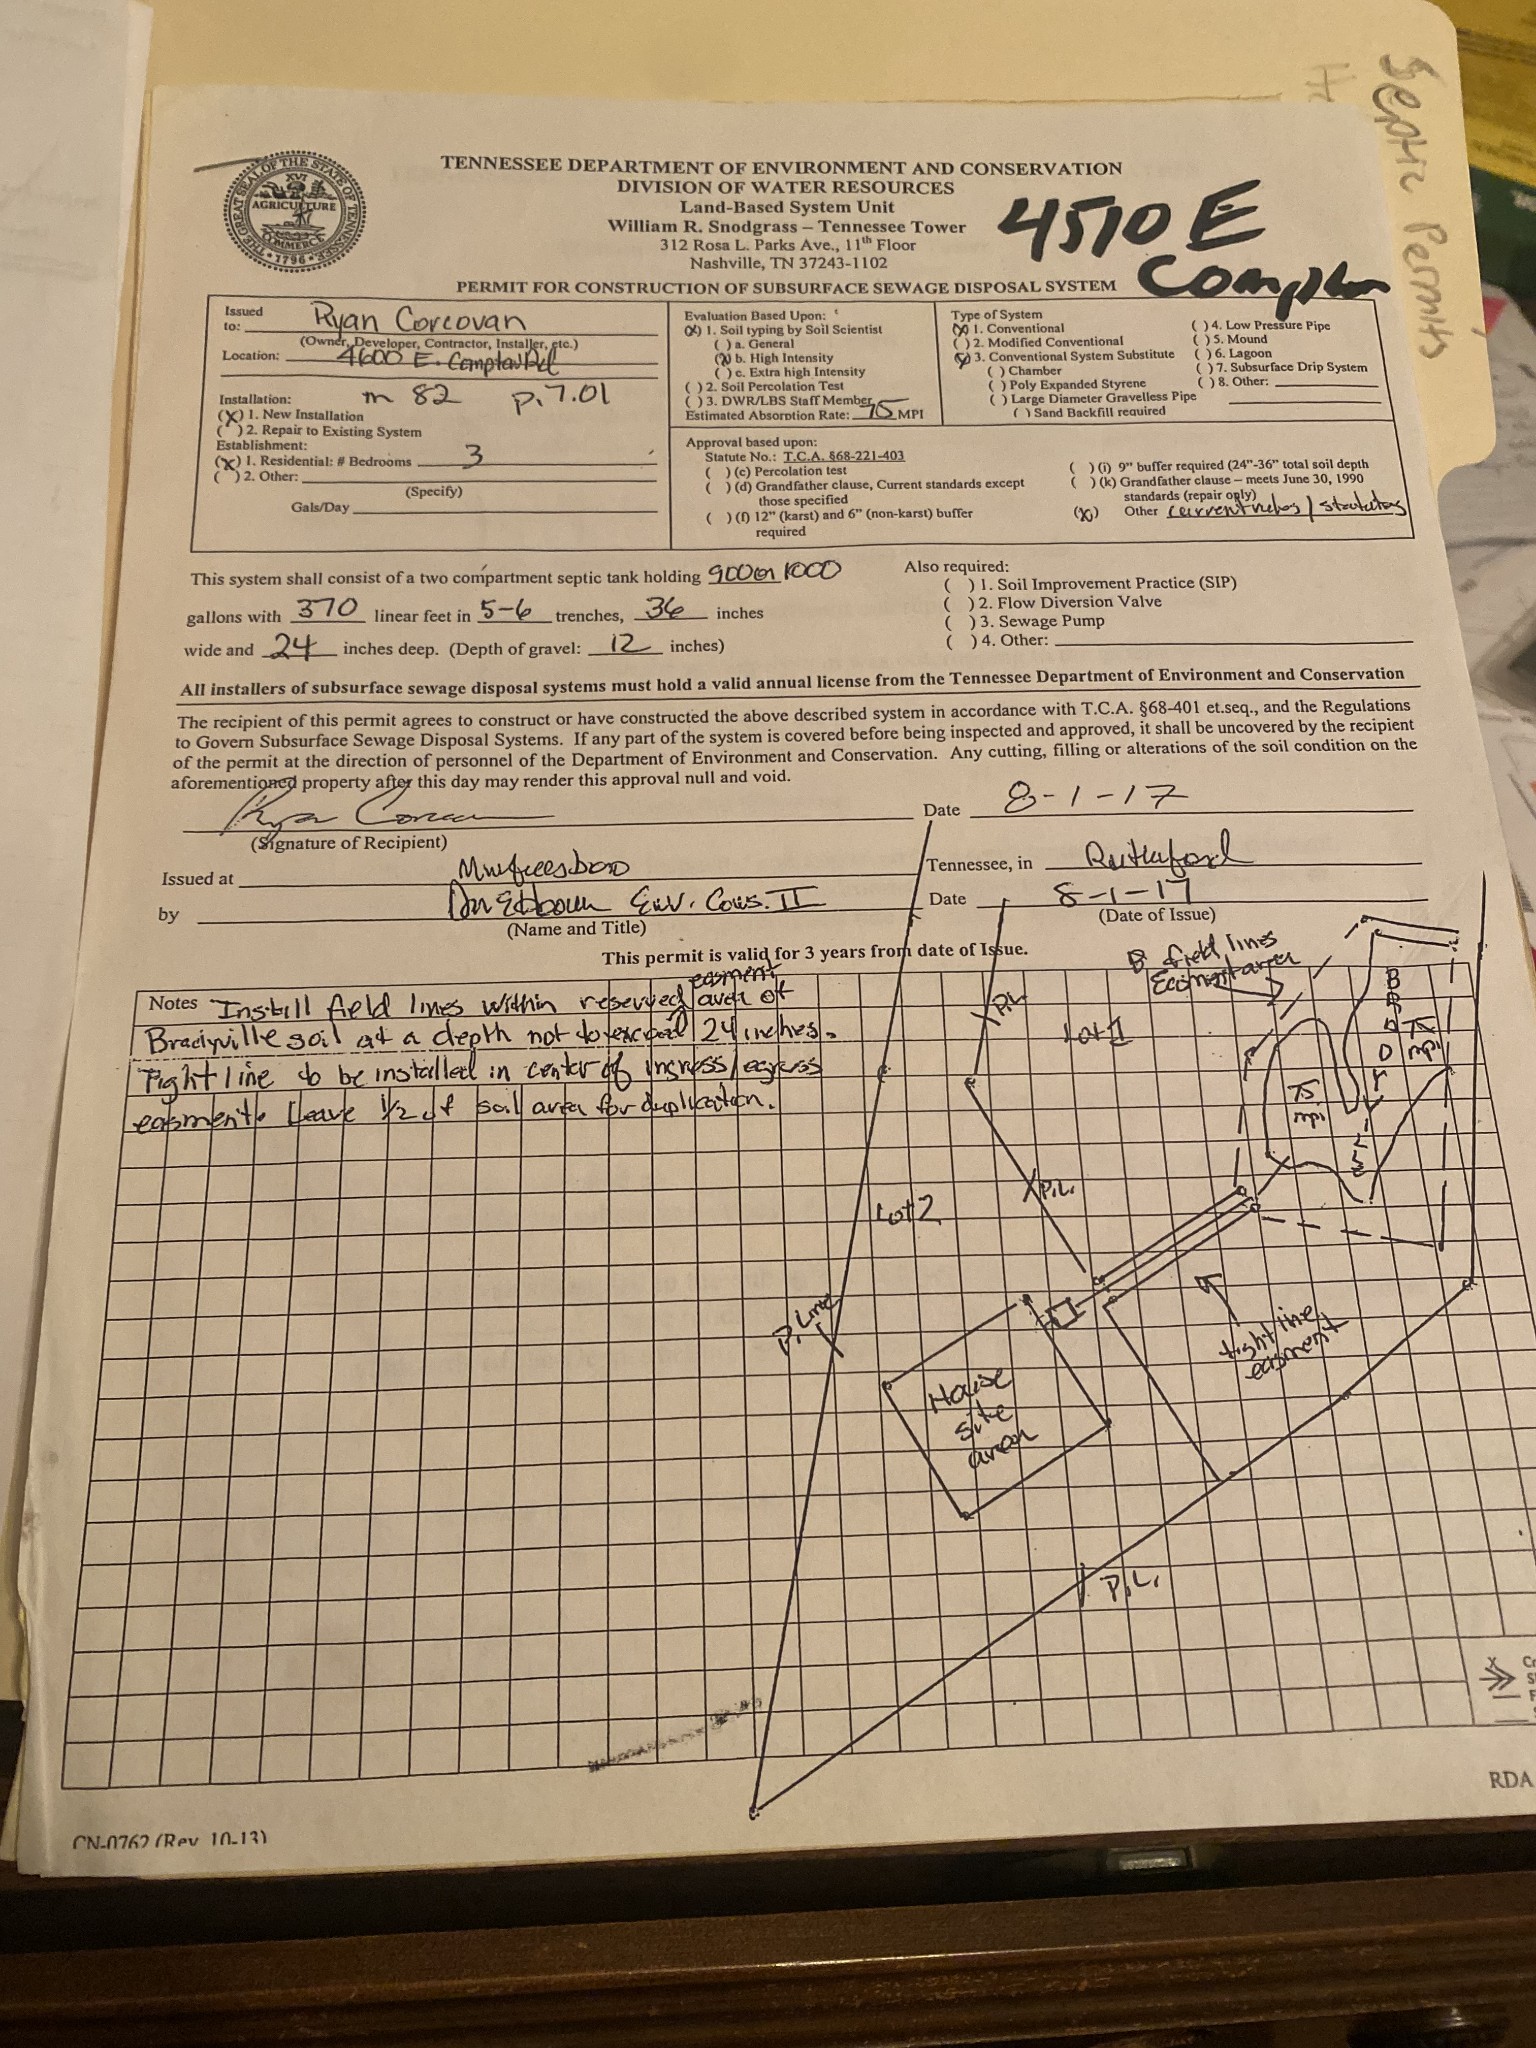 Septic Permits
THE GREAT SEAL OF THE STATE OF TENNESSEE
XVI
AGRICULTURE
COMMERCE
1796
TENNESSEE DEPARTMENT OF ENVIRONMENT AND CONSERVATION
DIVISION OF WATER RESOURCES
Land-Based System Unit
William R. Snodgrass – Tennessee Tower
312 Rosa L. Parks Ave., 11th Floor
Nashville, TN 37243-1102
4510 E
PERMIT FOR CONSTRUCTION OF SUBSURFACE SEWAGE DISPOSAL SYSTEM
Issued to: Ryan Corcovan
(Owner, Developer, Contractor, Installer, etc.)
Location: 4600 E. Compton Rd
m 82 p. 7.01
Installation:
(X) 1. New Installation
( ) 2. Repair to Existing System
Establishment:
(X) 1. Residential: # Bedrooms 3
( ) 2. Other:
(Specify)
Gals/Day
Evaluation Based Upon:
(X) 1. Soil typing by Soil Scientist
( ) a. General
(X) b. High Intensity
( ) c. Extra high Intensity
( ) 2. Soil Percolation Test
( ) 3. DWR/LBS Staff Member
Estimated Absorption Rate: 75 MPI
Type of System
(X) 1. Conventional
( ) 2. Modified Conventional
(X) 3. Conventional System Substitute
( ) Chamber
( ) Poly Expanded Styrene
( ) Large Diameter Gravelless Pipe
( ) Sand Backfill required
( ) 4. Low Pressure Pipe
( ) 5. Mound
( ) 6. Lagoon
( ) 7. Subsurface Drip System
( ) 8. Other:
Approval based upon:
Statute No.: T.C.A. §68-221-403
( ) (c) Percolation test
( ) (d) Grandfather clause, Current standards except
those specified
( ) (f) 12" (karst) and 6" (non-karst) buffer
required
( ) (i) 9" buffer required (24"-36" total soil depth
( ) (k) Grandfather clause – meets June 30, 1990
standards (repair only)
(X) Other current rules / statutes
This system shall consist of a two compartment septic tank holding 900 or 1000
gallons with 370 linear feet in 5-6 trenches, 36 inches
wide and 24 inches deep. (Depth of gravel: 12 inches)
Also required:
( ) 1. Soil Improvement Practice (SIP)
( ) 2. Flow Diversion Valve
( ) 3. Sewage Pump
( ) 4. Other:
All installers of subsurface sewage disposal systems must hold a valid annual license from the Tennessee Department of Environment and Conservation
The recipient of this permit agrees to construct or have constructed the above described system in accordance with T.C.A. §68-401 et.seq., and the Regulations
to Govern Subsurface Sewage Disposal Systems. If any part of the system is covered before being inspected and approved, it shall be uncovered by the recipient
of the permit at the direction of personnel of the Department of Environment and Conservation. Any cutting, filling or alterations of the soil condition on the
aforementioned property after this day may render this approval null and void.
Date 8-1-17
(Signature of Recipient)
Issued at Murfreesboro Tennessee, in Rutherford
by Env. Cons. II Date 8-1-17
(Name and Title) (Date of Issue)
This permit is valid for 3 years from date of Issue.
Notes Install field lines within reserved easment area of
Bradyville soil at a depth not to exceed 24 inches.
Tight line to be installed in center of ingress/egress
easment. Leave 1/2 of soil area for duplication.
field lines
P.L.
Lot 1
75 mpi
75 mpi
P.L.
Lot 2
P. Line
tight line
easment
House
site
area
P.L.
RDA
CN-0762 (Rev. 10-13)